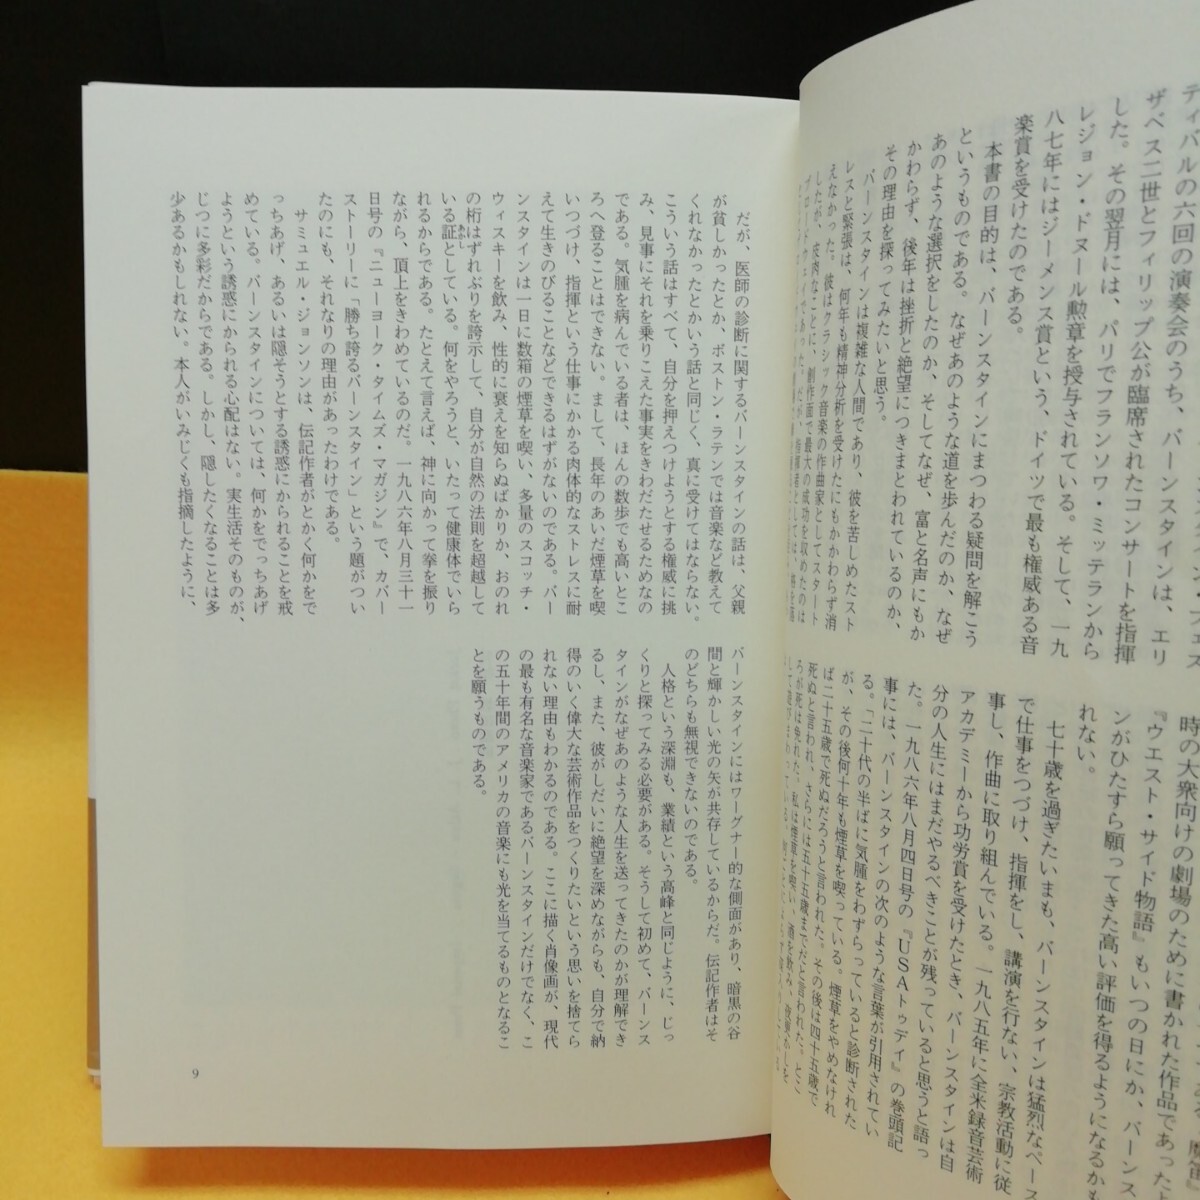 ティバルの六回の演奏会のうち、バーンスタインは、エリ
ザベス二世とフィリップ公が臨席されたコンサートを指揮
した。その翌月には、パリでフランソワ・ミッテランから
レジョン・ドヌール勲章を授与されている。そして、一九
八七年にはジーメンス賞という、ドイツで最も権威ある音
楽賞を受けたのである。
本書の目的は、バーンスタインにまつわる疑問を解こう
というものである。なぜあのような道を歩んだのか、なぜ
あのような選択をしたのか、そしてなぜ、富と名声にもか
かわらず、後年は挫折と絶望につきまとわれているのか、
その理由を探ってみたいと思う。
バーンスタインは複雑な人間であり、彼を苦しめたスト
レスと緊張は、何年も精神分析を受けたにもかかわらず消
えなかった。彼はクラシック音楽の作曲家としてスタート
したが、皮肉なことに、創作面で最大の成功を収めたのは
ブロードウェイであった。だが、指揮者としては、
時の大衆向けの劇場のために書かれた作品であった
『ウエスト・サイド物語』もいつの日にか、バーンス
ンがひたすら願ってきた高い評価を得るようになるかも
れない。
七十歳を過ぎたいまも、バーンスタインは猛烈なペース
で仕事をつづけ、指揮をし、講演を行ない、宗教活動に従
事し、作曲に取り組んでいる。一九八五年に全米録音芸術
アカデミーから功労賞を受けたとき、バーンスタインは自
分の人生にはまだやるべきことが残っていると思うと語っ
た。一九八六年八月四日号の『ＵＳＡトゥデイ』の巻頭記
事には、バーンスタインの次のような言葉が引用されてい
る。「二十代の半ばに気腫をわずらっていると診断された
が、その後何十年も煙草を喫っている。煙草をやめなけれ
ば二十五歳で死ぬだろうと言われた。その後は四十五歳で
死ぬと言われ、さらには五十五歳までだと言われた。とこ
ろが死は免れた。私は煙草を喫い、酒を飲み、夜更かしを
だが、医師の診断に関するバーンスタインの話は、父親
が貧しかったとか、ボストン・ラテンでは音楽など教えて
くれなかったとかいう話と同じく、真に受けてはならない。
こういう話はすべて、自分を押えつけようとする権威に挑
み、見事にそれを乗りこえた事実をきわだたせるためなの
である。気腫を病んでいる者は、ほんの数歩でも高いとこ
ろへ登ることはできない。まして、長年のあいだ煙草を喫
いつづけ、指揮という仕事にかかる肉体的なストレスに耐
えて生きのびることなどできるはずがないのである。バー
ンスタインは一日に数箱の煙草を喫い、多量のスコッチ・
ウィスキーを飲み、性的に衰えを知らぬばかりか、おのれ
の桁はずれぶりを誇示して、自分が自然の法則を超越して
いる証としている。何をやろうと、いたって健康体でいら
れるからである。たとえて言えば、神に向かって拳を振り
ながら、頂上をきわめているのだ。一九八六年八月三十一
日号の『ニューヨーク・タイムズ・マガジン』で、カバー
ストーリーに「勝ち誇るバーンスタイン」という題がつい
たのにも、それなりの理由があったわけである。
サミュエル・ジョンソンは、伝記作者がとかく何かをで
っちあげ、あるいは隠そうとする誘惑にかられることを戒
めている。バーンスタインについては、何かをでっちあげ
ようという誘惑にかられる心配はない。実生活そのものが、
じつに多彩だからである。しかし、隠したくなることは多
少あるかもしれない。本人がいみじくも指摘したように、
バーンスタインにはワーグナー的な側面があり、暗黒の谷
間と輝かしい光の矢が共存しているからだ。伝記作者はそ
のどちらも無視できないのである。
人格という深淵も、業績という高峰と同じように、じっ
くりと探ってみる必要がある。そうして初めて、バーンス
タインがなぜあのような人生を送ってきたのかが理解でき
るし、また、彼がしだいに絶望を深めながらも、自分で納
得のいく偉大な芸術作品をつくりたいという思いを捨てら
れない理由もわかるのである。ここに描く肖像画が、現代
の最も有名な音楽家であるバーンスタインだけでなく、こ
の五十年間のアメリカの音楽にも光を当てるものとなるこ
とを願うものである。
9